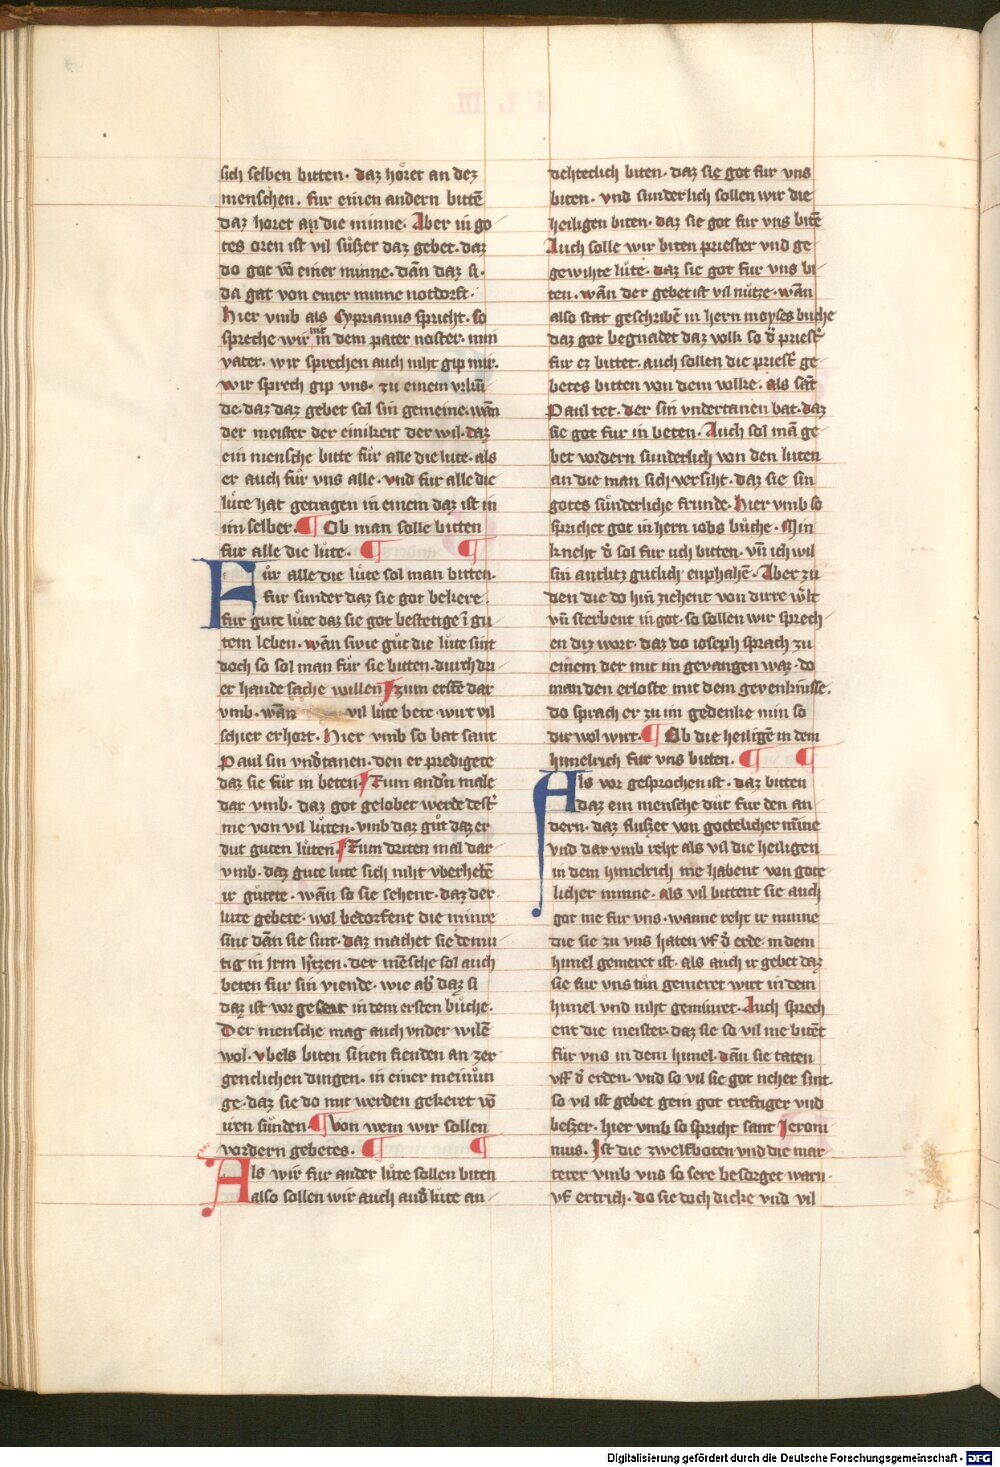 sich selben bitten · daz hoͤret an dez
menschen . fur einen andern bittē
daz horet an die minne · Aber in go
tes oren ist vil suͤßer daz gebet · daz
do gat vō einer minne · dān daz si ·
da gat von einer minne notdorft ·
Hier vmb als Cyprianus spricht · so
spreche wir nit in dem pater noster · min
vater · wir sprechen auch niht gip mir ·
wir sprech gip vns · zu einem vrkuͤn
de · daz daz gebet sol sin gemeine · wān
der meister der einikeit der wil · daz
ein mensche bitte fuͤr alle die lute · als
er auch fuͤr vns alle · vnd fur alle die
luͤte hat getragen in einem daz ist in
im selber · ¶ Ob man solle bitten
fur alle die luͤte · ¶ ¶
Fuͤr alle die luͤte sol man bitten ·
fur sunder daz sie got bekere ·
fur gute luͤte daz sie got bestetige ī gu
tem leben · wān swie guͤt die luͤte sint
doch so sol man fuͤr sie bitten · durch dri
er hande sache willen ¶ zum erstē dar
vmb · wān vil luͤte bete wirt vil
schier erhort · Hier vmb so bat sant
Paul sin vnd̓tanen · den er predigete
daz sie fuͤr in beten ¶ Zum and̓n male
dar vmb · daz got gelobet werde dest̓
me von vil luͤten · vmb daz guͤt daz er
dut guten luͤten · ¶ Zum driten mal dar
vmb · daz gute lute sich niht vberhebē
ir guͤtete · wān so sie sehent · daz der
lute gebete · wol bedorfent die minre
sint dān sie sint · daz machet sie demu
tig in irm h̓tzen · der mēsche sol auch
beten fur sin viende · wie ab̓ daz si
daz ist vor geseit in dem ersten buͤche ·
Der mensche mag auch vnder wilē
wol · vbels biten sinen fienden an zer
genclichen dingen · in einer meinūn
ge · daz sie do mit werden gekeret vō
iren suͤnden · ¶ Von wem wir sollen
vordern gebetes · ¶ ¶
Als wir fur ander luͤte sollen biten
also sollen wir auch and̓ luͤte an
dehteclich biten · daz sie got fur vns
biten · vnd sunderlich sollen wir die
heiligen biten · daz sie got fur vns bitē
Auch solle wir biten priester vnd ge
gewihte luͤte · daz sie got fur vns bi
ten · wān der gebet ist vil nuͤtze · wān
also stat geschribē in hern moyses buche
daz got begnadet daz volk so d̓ priest̓
fur ez bittet · auch sollen die priest̓ ge
betes bitten von dem volke · als sāt
Paul tet · der sin vndertanen bat · daz
sie got fur in beten · Auch sol mā ge
bet vordern sunderlich von den luten
an die man sich versiht · daz sie sin
gotes suͤnderliche frunde · Hier vmb so
sprichet got in hern iobs buͤche · Min
kneht d̓ sol fur uch bitten · vn̄ ich wil
sin antlitz gutlich enphahē · Aber zu
den die do hin ziehent von dirre w̓lt
vn̄ sterbent in got · so sollen wir sprech
en diz wort · daz do ioseph sprach zu
einem der mit im gevangen waz · do
man den erloste mit dem gevenknisse ·
do sprach er zu im gedenke min so
dir wol wirt · ¶ Ob die heiligē in dem
himelrich fur vns bitten · ¶ ¶
Als vor gesprochen ist · daz bitten
daz ein mensche duͤt fur den an
dern · daz flußet von gottelicher mīne
vnd dar vmb reht als vil die heiligen
in dem himelrich me habent von gote
licher minne · als vil bittent sie auch
got me fur vns · wanne reht ir minne
die sie zu vns haten vf d̓ erde · in dem
himel gemeret ist · als auch ir gebet daz
sie fur vns tuͤn gemeret wirt in dem
himel vnd niht geminret · Auch sprech
ent die meister · daz sie so vil me bitēt
fuͤr vns in dem himel · dān sie taten
vff d̓ erden · vnd so vil sie got neher sint ·
so vil ist gebet gein got creftiger vnd
beßer · hier vmb so spricht sant Jeroni
mus · Ist die zwelfboten vnd die mar
teter vmb vns so sere besorget warn ·
vf ertrich · do sie doch dicke vnd vil
Digitalisierung gefördert durch die Deutsche Forschungsgemeinschaft - DFG